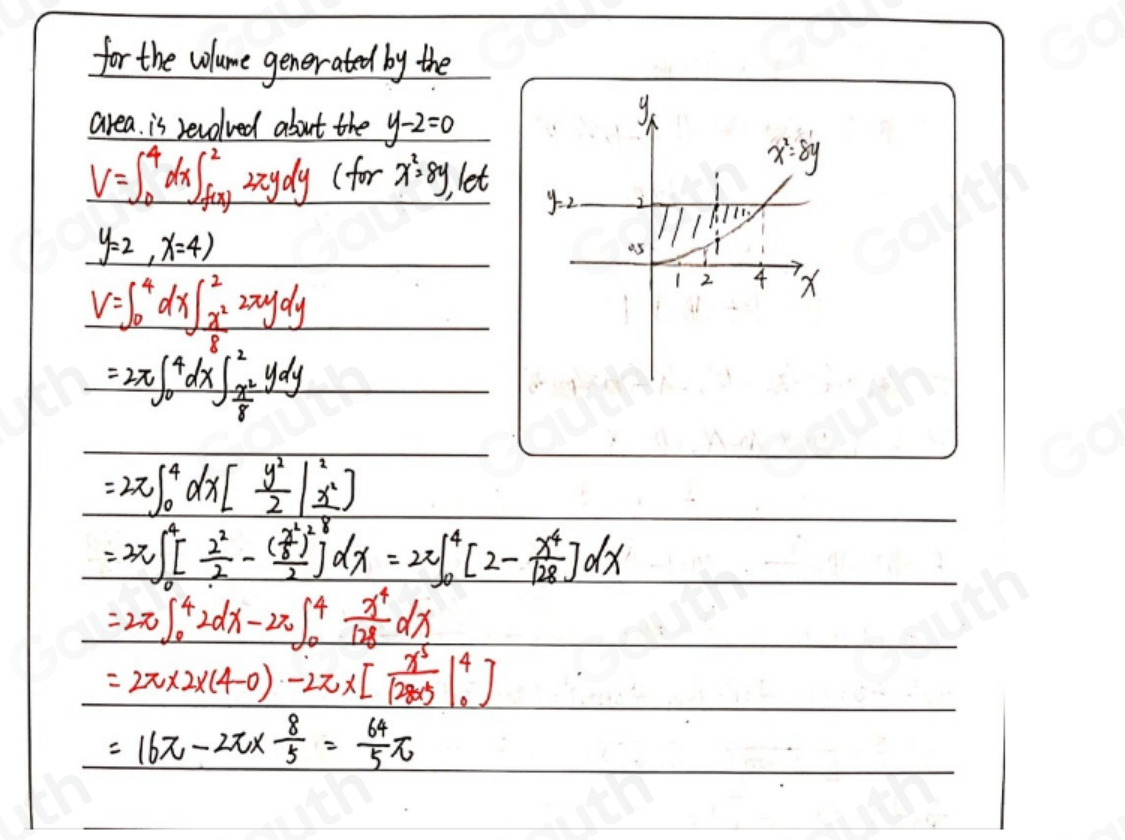 for the volume generated by the
area. is revolved about the y-2=0
V=∫₀⁴ dx∫_{f(x)}² 2πydy (for x²=8y, let
y=2, x=4)
V=∫₀⁴ dx∫_{x²/8}² 2πydy
=2π∫₀⁴dx∫_{x²/8}² ydy
=2π∫₀⁴ dx[ y²/2 |_{x²/8}² ]
=2π∫₀⁴[ 2²/2 - (x²/8)²/2 ]dx = 2π∫₀⁴[2- x⁴/128]dx
=2π∫₀⁴2dx-2π∫₀⁴ x⁴/128 dx
= 2π×2×(4-0) -2π×[ x⁵/128×5 |₀⁴ ]
= 16π-2π× 8/5 = 64/5 π
y
x²=8y
y=2
2
0.5
1 2 4 x
Gauth